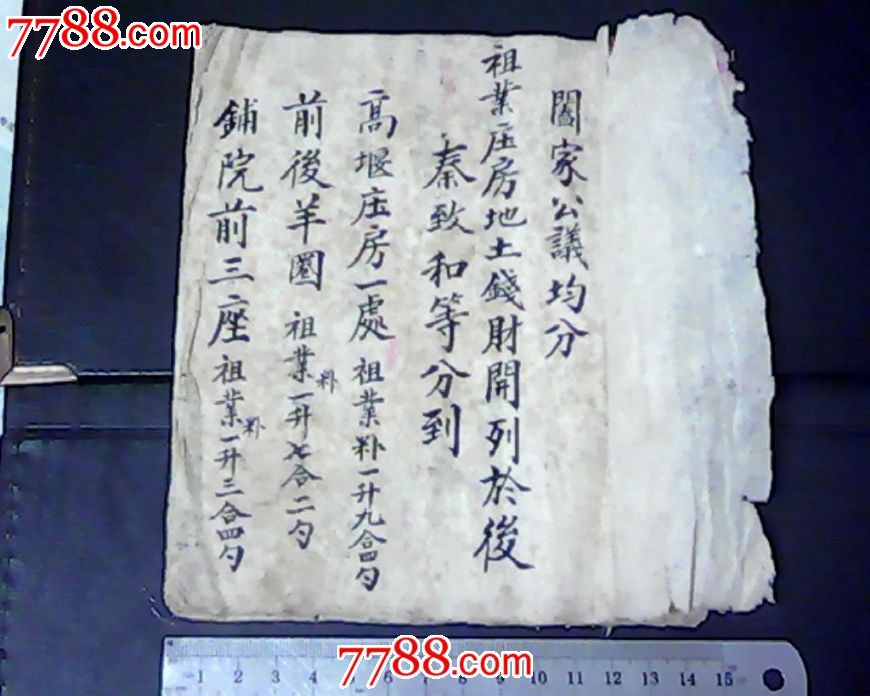 7788.com
7788.com
闔家公議均分
祖業庄房地土錢財開列於後
秦致和等分到
高堰庄房一處祖業粆一升九合四勺
前後羊圈祖業粆一升七合二勺
鋪院前三座祖業粆一升三合四勺
1 2 3 4 5 6 7 8 9 10 11 12 13 14 15
7788.com